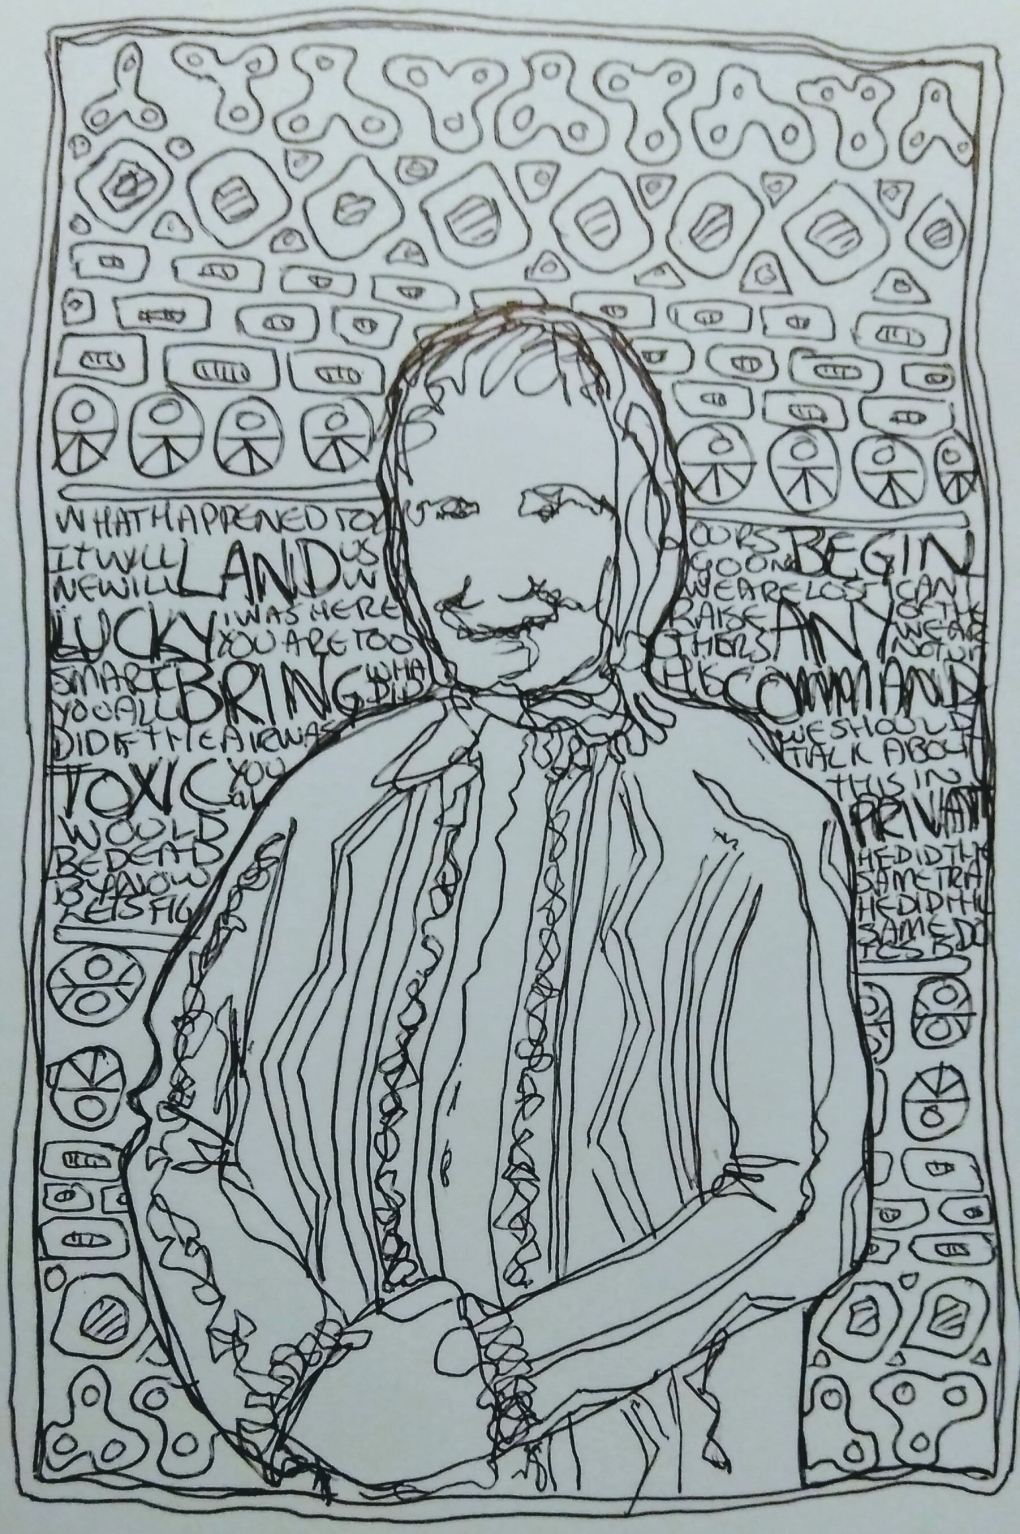 WHAT HAPPENED TO
IT WILL LAND US
NEWILL W
LUCKY I WAS HERE
YOU ARE TOO
SMART BRING WHA
YOU ALL DID
DID IF THE AIR WAS
TOXIC YOU
al
WOULD
BE DEAD
BY NOW
LETS FIG
OURS BEGIN
GO ON
WE ARE LOST I CAN
RAISE ANY OF THE
OTHERS WE ARE
NOT UP
COMMAND
WE SHOULD
TALK ABOUT
THIS IN
PRIVAT
HE DID THE
SAME TRA
HE DID THE
SAME DO